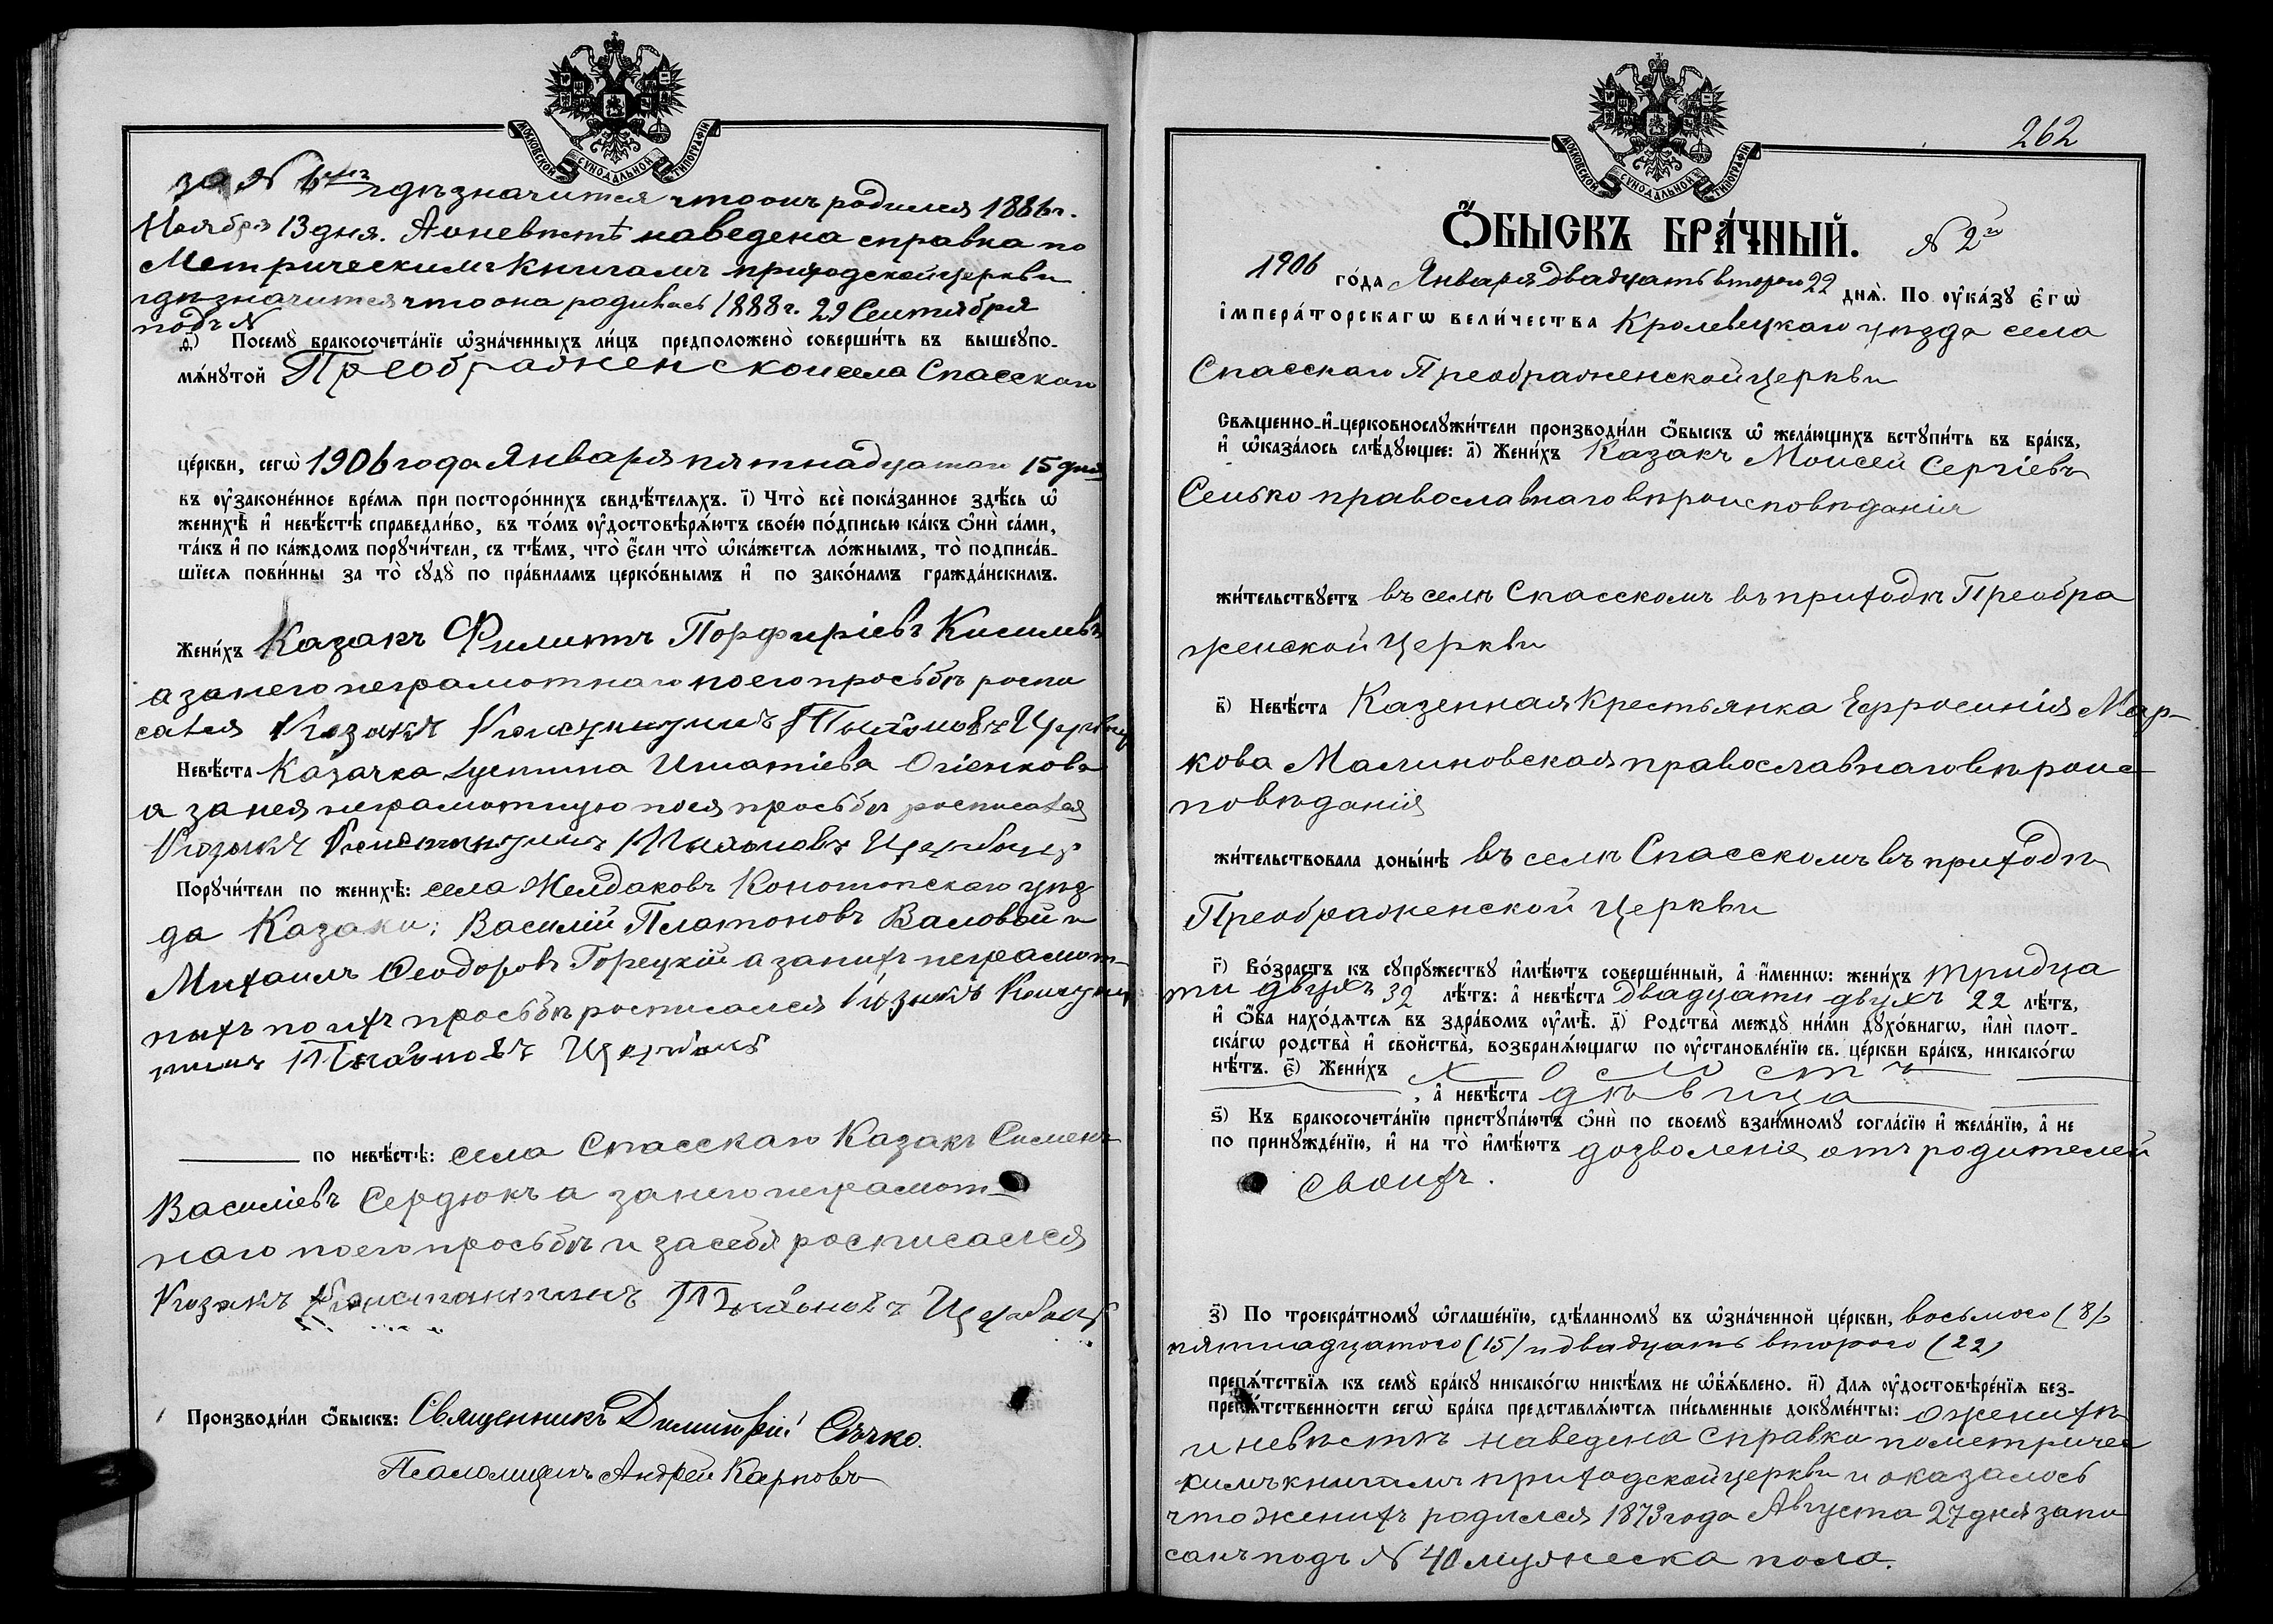 МОСКОВСКОЙ СѴНОДАЛЬНОЙ ТИПОГРАФІИ
за № гдѣ значится что онъ родился 1886 г.
Ноября 13 дня. А о невѣстѣ наведена справка по
Метрическимъ Книгамъ приходской церкви
гдѣ значится что она родилась 1888 г. 29 Сентября
подъ №
д҃) Посемꙋ̀ бракосочета́нїе ѡ҆зна́ченныхъ ли́цъ предположено̀ соверши́ть въ вышеꙋпо-
мѧ́нꙋтой Преображенской села Спасскаго
це́ркви, сегѡ̀ 1906 года Января пятнадцатаго 15 дня
въ ᲂу҆законе́нное вре́мѧ при посторо́ннихъ свидѣ́телѧхъ. і҃) Что̀ всѐ пока́занное здѣ́сь ѡ҆
женихѣ̀ и҆ невѣ́стѣ справедли́во, въ то́мъ ᲂу҆достовѣрѧ́ютъ свое́ю по́дписью ка́къ ѻ҆нѝ са́ми,
та́къ и҆ по ка́ждомъ порꙋчи́тели, съ тѣ́мъ, что̀ є҆́сли что̀ ѡ҆ка́жется ло́жнымъ, то̀ подписа́в-
шїеся пови́нны за то̀ сꙋдꙋ̀ по пра́виламъ церко́внымъ и҆ по зако́намъ гражда́нскимъ.
Жени́хъ Казакъ Филиппъ Порфиріевъ Киселевъ
а за него неграмотнаго по его просьбѣ роспи
сался Козакъ Константинъ Пахомовъ
Невѣ́ста Казачка Іустина Игнатіева Огіенкова
а за нея неграмотную по ея просьбѣ росписался
Козакъ Константинъ Пахомовъ
Порꙋчи́тели по женихѣ̀: села Мелдаковъ Конотопскаго уѣз
да Казаки: Василій Платоновъ Валовой и
Михаилъ Ѳеодоровъ Горецкій а за нихъ неграмот-
ныхъ по ихъ просьбѣ росписался Козакъ Констан
тинъ Пахомовъ
по невѣ́стѣ: села Спасскаго Казакъ Симеонъ
Василіевъ Сердюкъ а за него неграмот-
наго по его просьбѣ и за себя росписался
Козакъ Константинъ Пахомовъ
Производи́ли ѻ҆́быскъ: Священникъ Димитрій Сѣчко.
Псаломщикъ Андрей Карповъ
МОСКОВСКОЙ СѴНОДАЛЬНОЙ ТИПОГРАФІИ
262
Ѻ҆́БЫСКЪ БРА́ЧНЫЙ. № 2й
1906 го́да Января двадцать второго 22 днѧ̀. По ᲂу҆ка́зꙋ є҆гѡ̀
і҆мпера́торскагѡ вели́чества Кролевецкаго уѣзда села
Спасскаго Преображенской Церкви
Свѧщенно-и҆-церковнослꙋжи́тели производи́ли ѻ҆́быскъ ѡ҆ жела́ющихъ встꙋпи́ть въ бра́къ,
и҆ ѡ҆каза́лось слѣ́дꙋющее: а҃) Жени́хъ Казакъ Моисей Сергіевъ
Сенько православнаго вѣроисповѣданія
жи́тельствꙋетъ въ селѣ Спасскомъ въ приходѣ Преобра
женской Церкви
в҃) Невѣ́ста Казенная Крестьянка Евфросинія Мар-
кова Малиновская православнаго вѣроис
повѣданія
жи́тельствовала доны́нѣ въ селѣ Спасскомъ въ приходѣ
Преображенской Церкви
г҃) Во́зрастъ къ сꙋпрꙋ́жествꙋ и҆мѣ́ютъ соверше́нный, а҆ и҆́меннѡ: жени́хъ тридца
ти двухъ 32 лѣ́тъ: а҆ невѣ́ста двадцати двухъ 22 лѣ́тъ,
и҆ ѻ҆́ба нахо́дятся въ здра́вомъ ᲂу҆мѣ̀. д҃) Родства̀ междꙋ̀ ни́ми дꙋхо́внагѡ, и҆лѝ плот-
ска́гѡ родства̀ и҆ свойства̀, возбранѧ́ющагѡ по ᲂу҆становле́нїю св. це́ркви бра́къ, никако́гѡ
нѣ́тъ. є҃) Жени́хъ холостъ
, а҆ невѣ́ста дѣвица
ѕ҃) Къ бракосочета́нїю пристꙋпа́ютъ ѻ҆нѝ по своемꙋ̀ взаи́мномꙋ согла́сїю и҆ жела́нїю, а҆ не
по принꙋжде́нїю, и҆ на то̀ и҆мѣ́ютъ дозволеніе отъ родителей
своихъ.
з҃) По троекра́тномꙋ ѡ҆глаше́нїю, сдѣ́ланномꙋ въ ѡ҆зна́ченной це́ркви, восьмого (8)
пятнадцатого (15) и двадцать второго (22)
препѧ́тствїѧ къ семꙋ̀ бра́кꙋ никако́гѡ никѣ́мъ не ѡ҆б̾ѧ́влено. и҃) Для ᲂу҆достовѣре́нїя без-
препѧ́тственности сегѡ̀ бра́ка представлѧ́ются пи́сьменные докꙋме́нты: о женихѣ
и невѣстѣ наведена справка по метричес
кимъ книгамъ приходской церкви и оказалось
что женихъ родился 1873 года Августа 27 дня запи
санъ подъ № 40 мужеска пола.